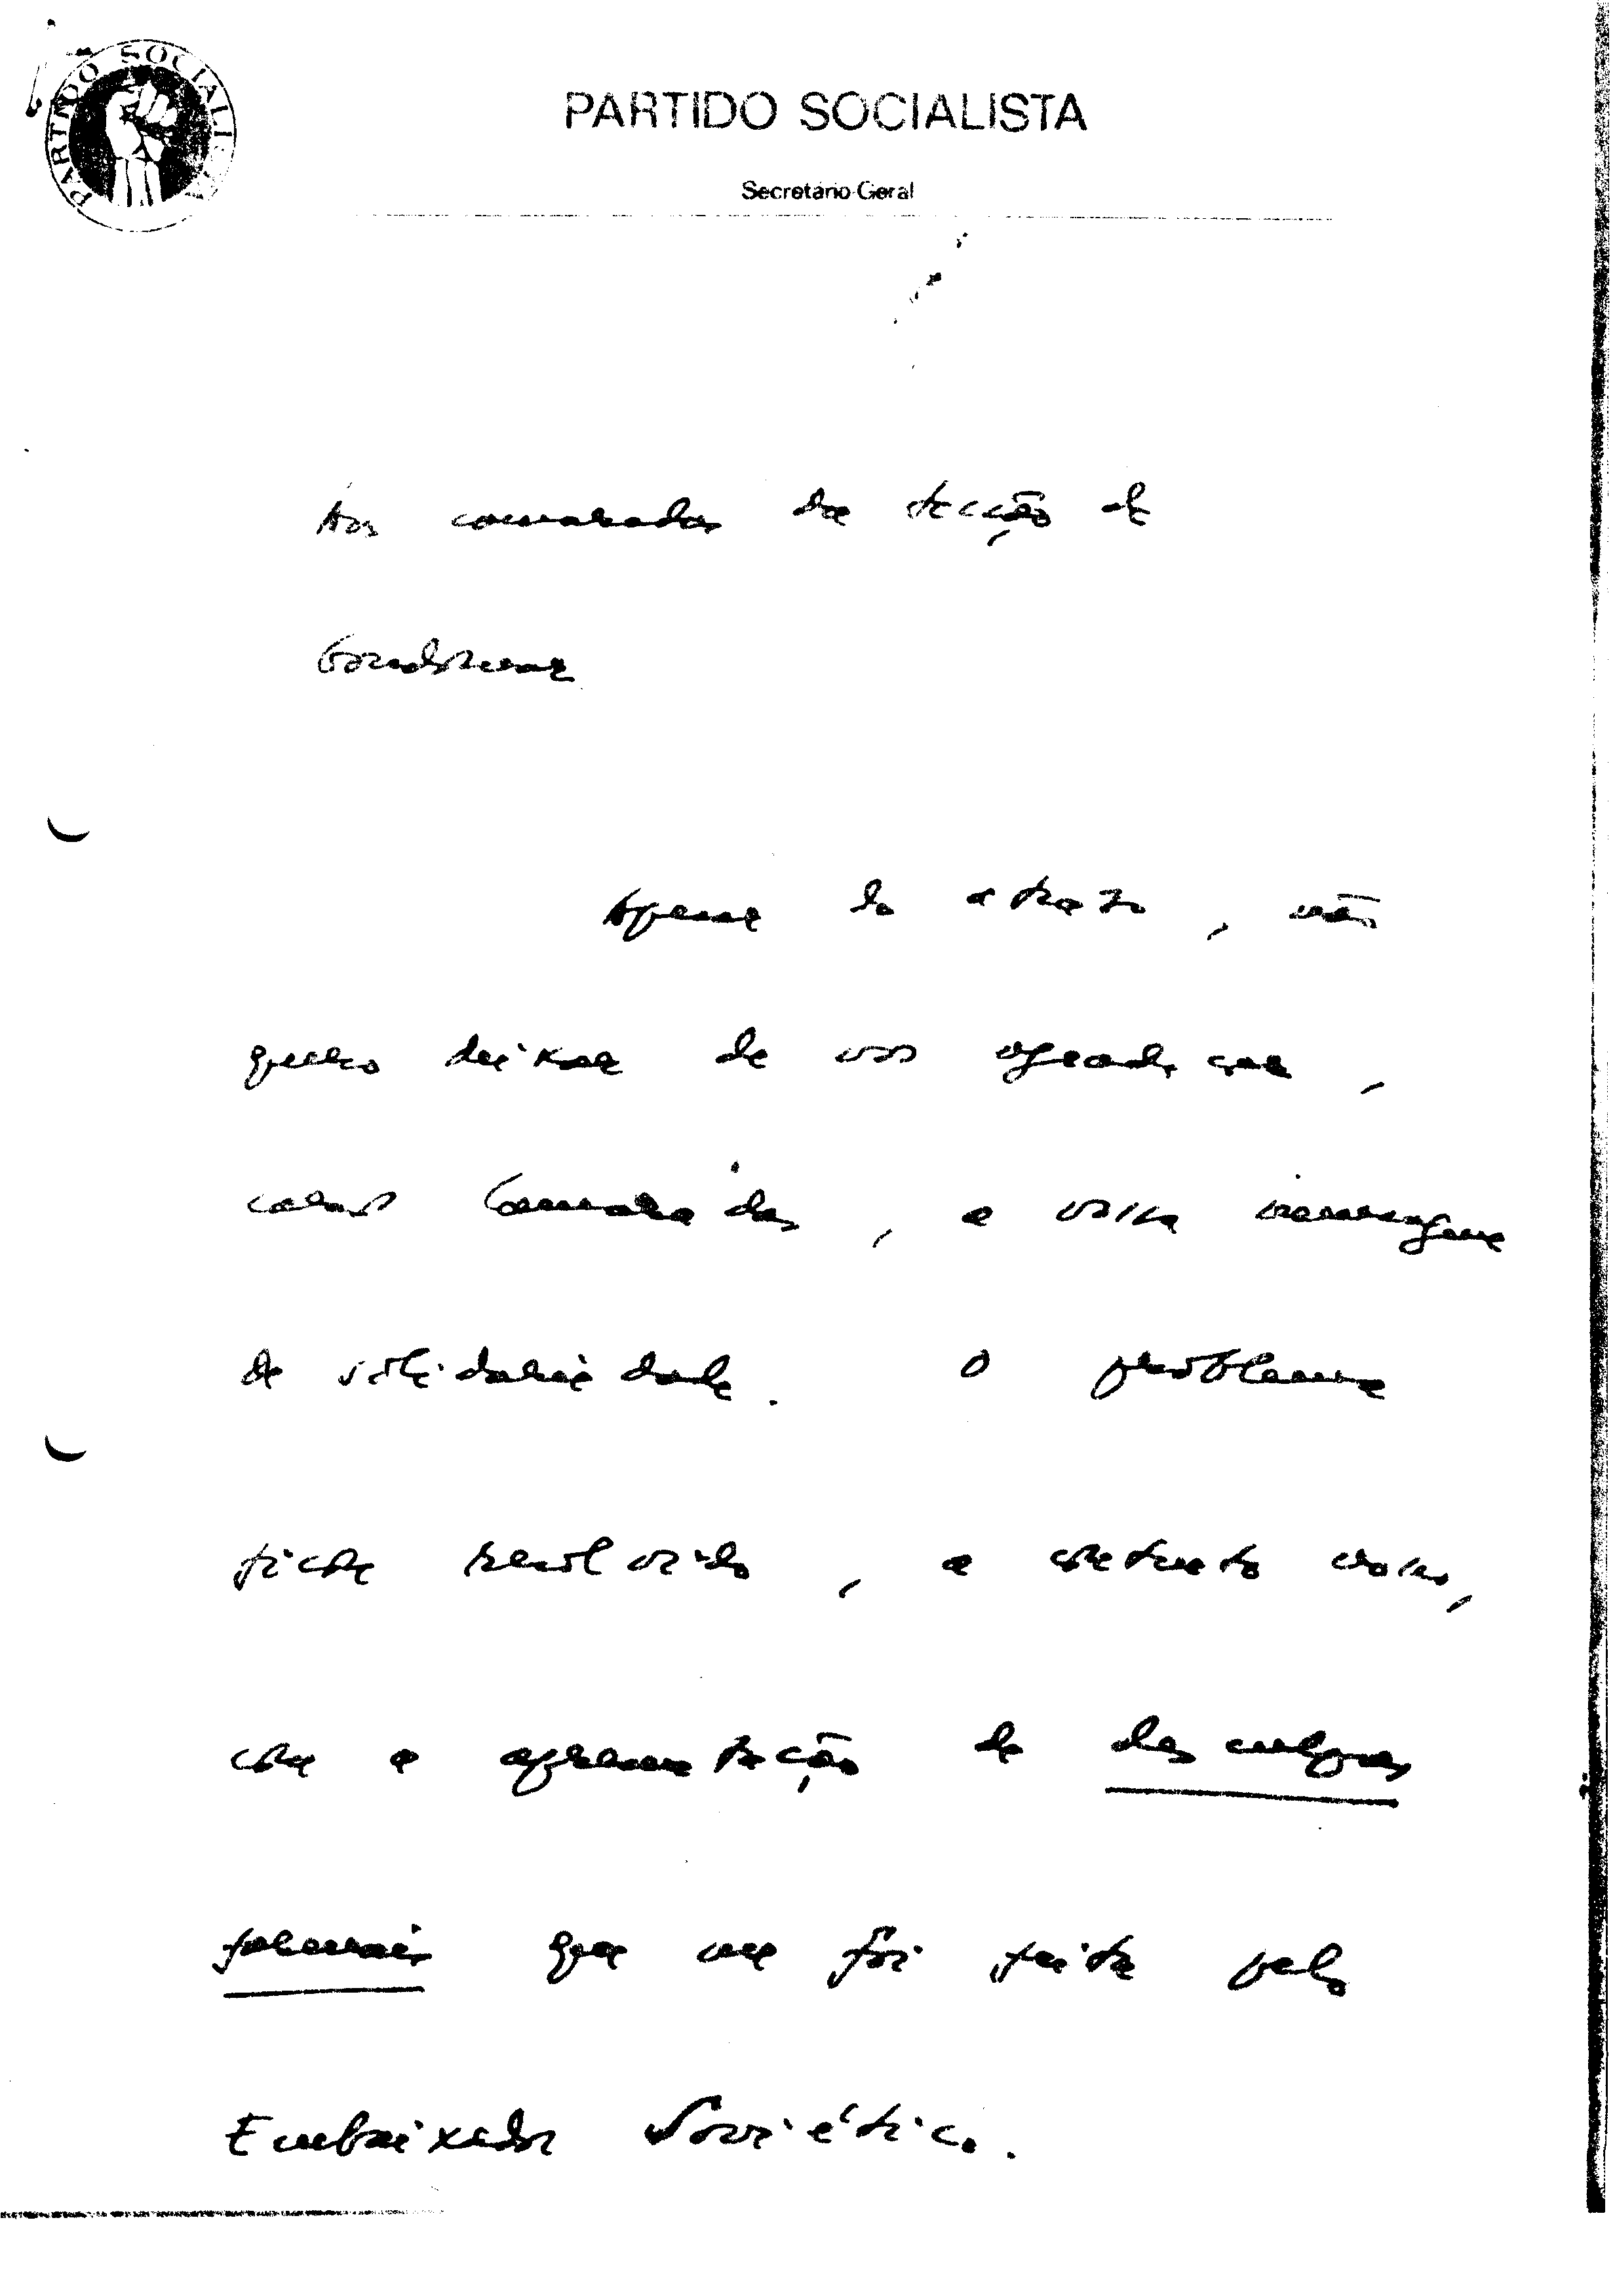 PARTIDO SOCIALISTA
PARTIDO SOCIALISTA
Secretário-Geral
Aos camaradas da secção de
Apesar do atrazo, não
quero deixar de vos agradecer,
caros Camaradas, a vossa mensagem
de solidariedade. O problema
ficou resolvido, a contento nosso,
com a apresentação de desculpas
formais que me foi feita pelo
Embaixador Soviético.